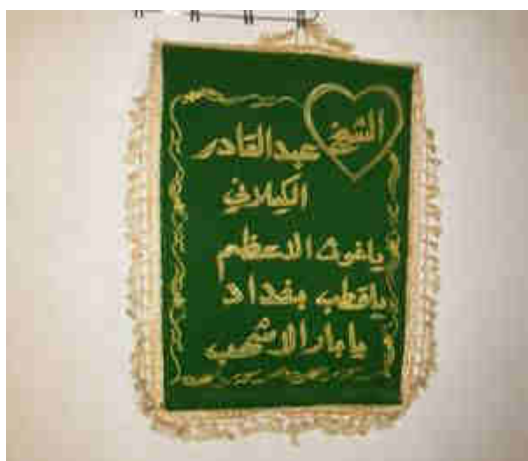 الشيخ عبدالقادر
الكيلاني
ياغوث الاعظم
ياقطب بغداد
ياباز الاشهب